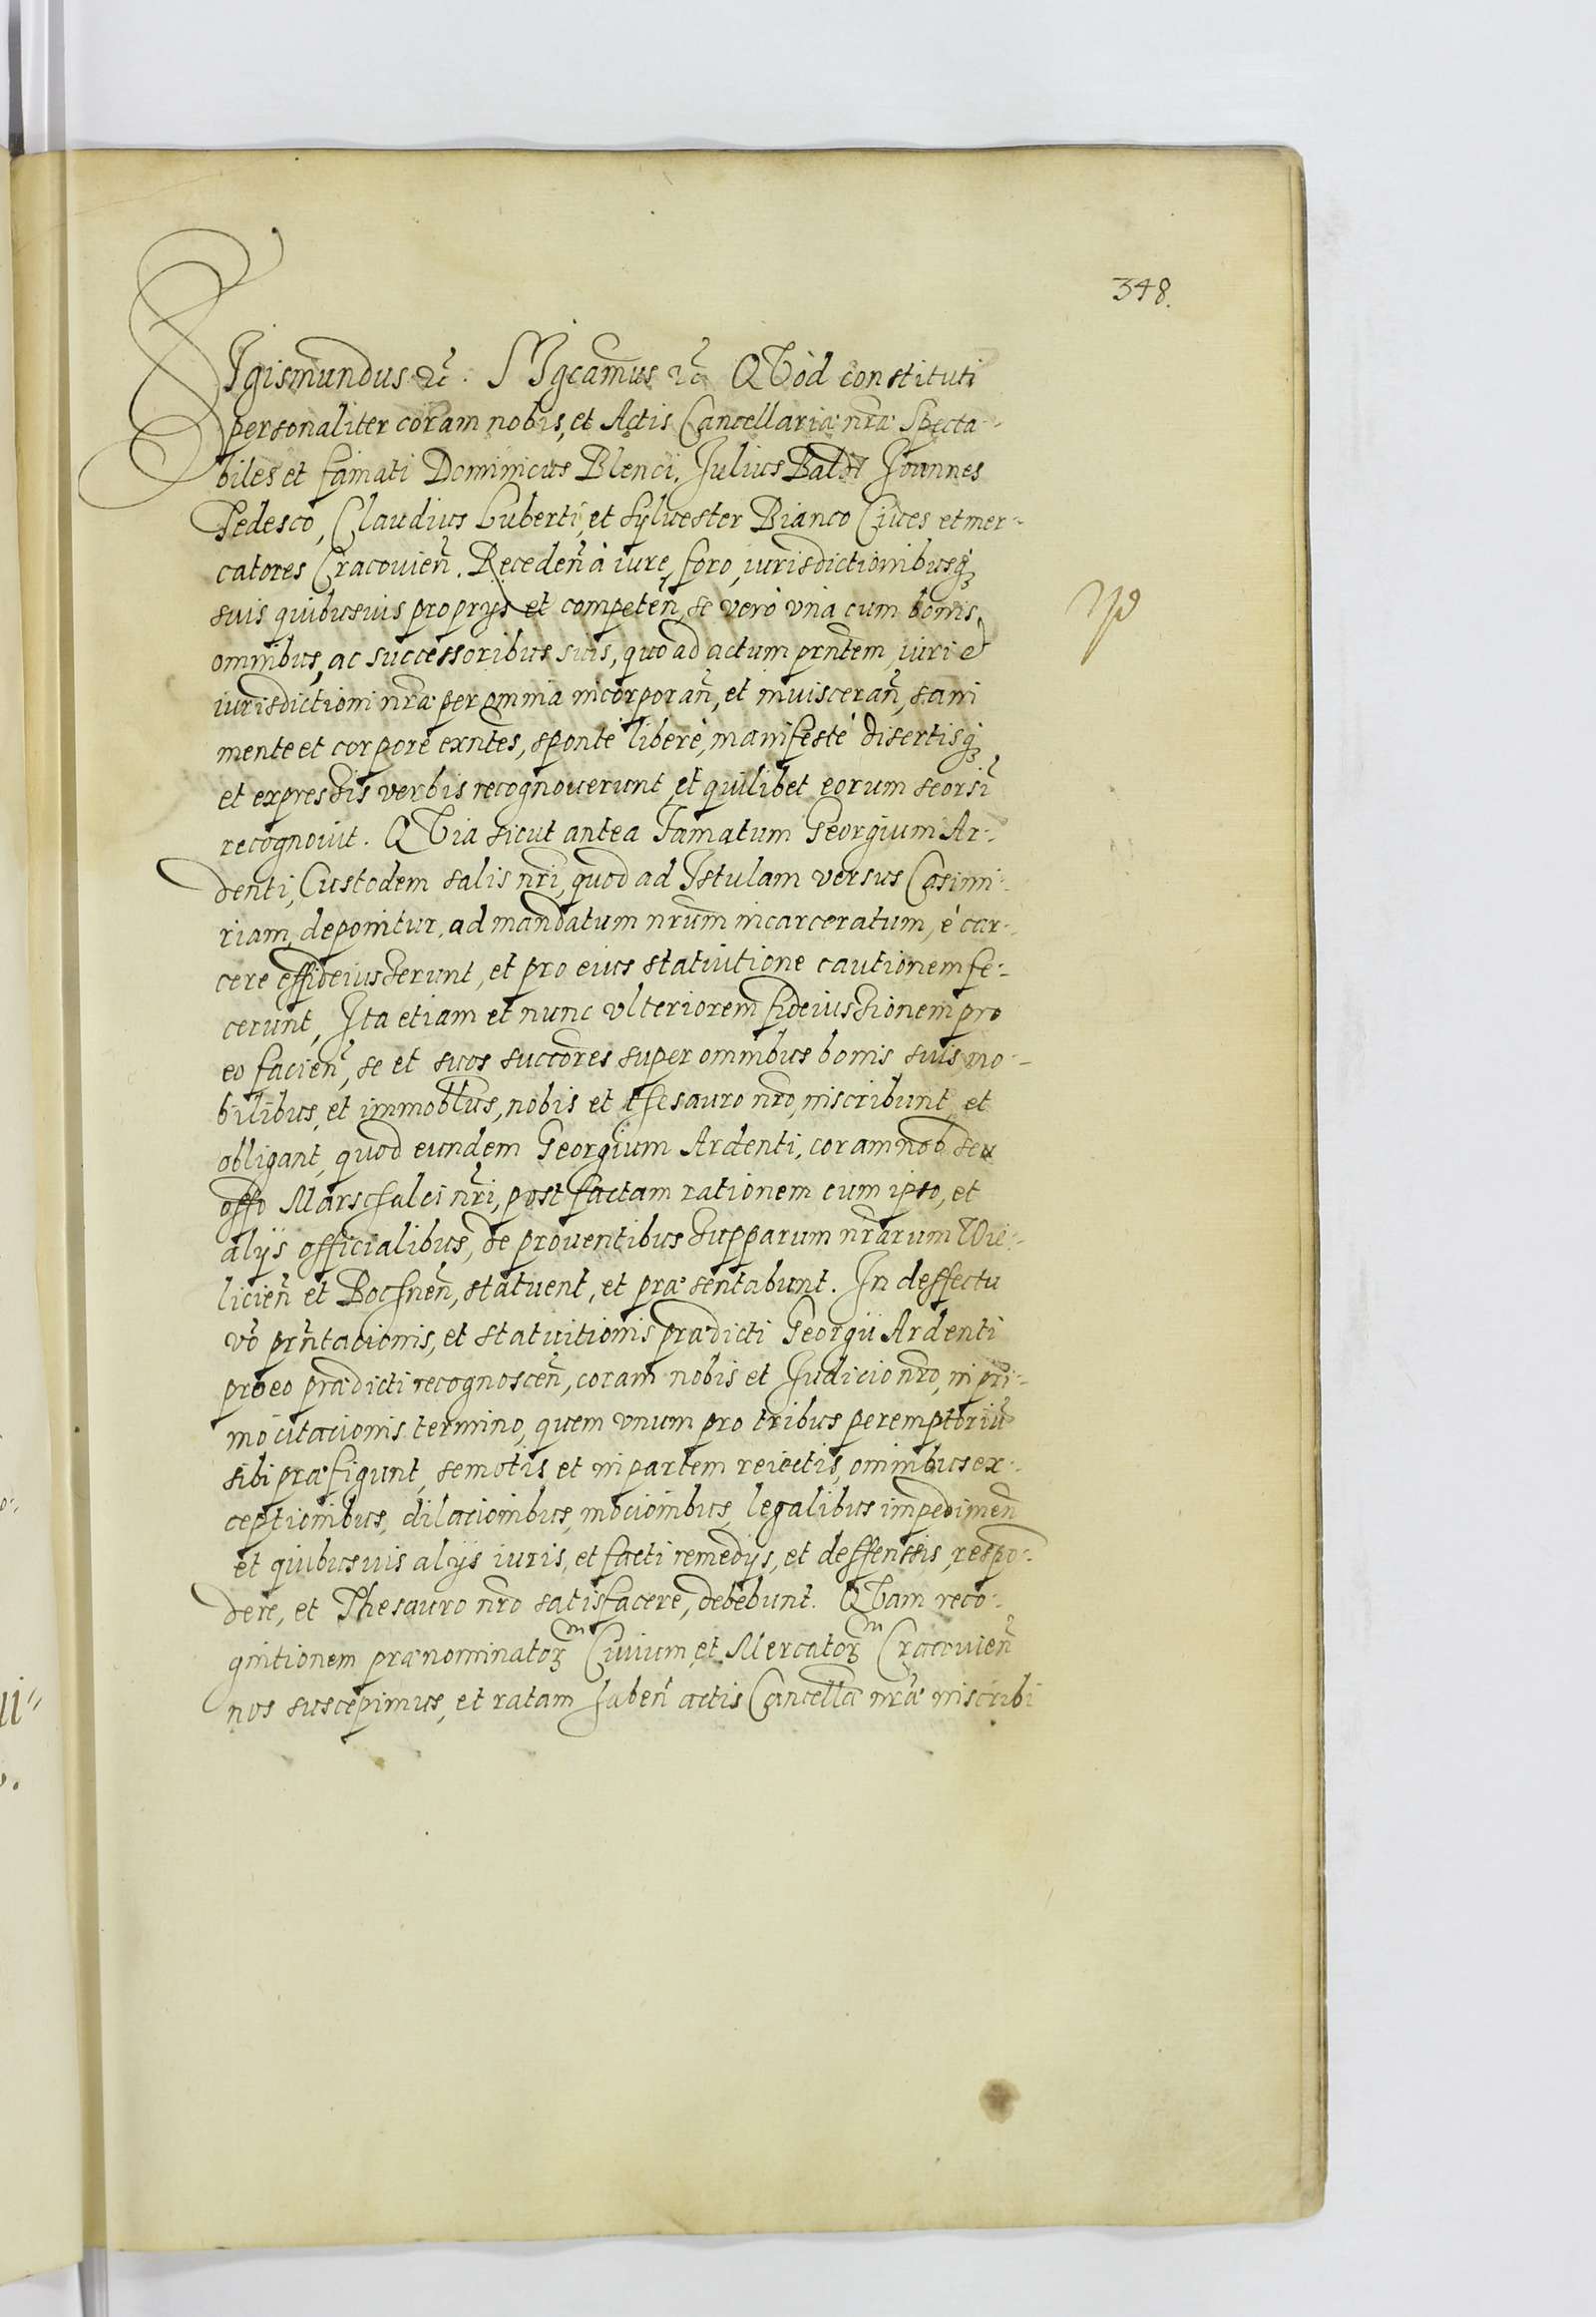 348.
SIgismundus ꝛc̃. SIgcamus ꝛc̃ QVòd constituti
personaliter coram nobis, et Actis Cancellariæ nr̃æ Specta-
biles et famati Dominicus Blenci, Julius Baldi Joannes
Tedesco, Claudius Luberti, et Syluester Bianco Ciues et mer-
catores Cracouien̄. Receden̄ à iure, foro, iurisdictionibusq́ꝫ
suis quibusuis proprijs et competen̄, se verò vnà cum bonis
omnibus, ac successoribus suis, quo ad actum prn̄tem iuri et
iurisdictioni nr̃æ per omnia incorporan̄, et inuisceran̄, sani
mente et corpore exn̄tes, sponte liberè, manifestè disertisq́ꝫ
et expressis verbis recognouerunt et quilibet eorum seorsī
recognouit. QVia sicut antea Famatum Georgium Ar-
denti, Custodem salis nr̃i, quod ad Istulam versus Casimi-
riam, deponitur, ad mandatum nr̃um incarceratum, è car-
cere effideiusserunt, et pro eius statuitione cautionem fe-
cerunt, Ita etiam et nunc vlteriorem fideiussionem pro
eo facien̄, se et suos succōres super omnibus bonis suis mo-
bilibus, et immobl̃bus, nobis et Thesauro nr̃o, inscribunt et
obligant, quod eundem Georgium Ardenti, coram nob seu
offo Marschalci nr̃i, post factam rationem cum ipso, et
alijs officialibus, de prouentibus Supparum nr̃arum Wie-
licien̄ et Bochnen̄, statuent, et præsentabunt. In deffectu
vō prn̄tacionis, et statuitionis prædicti Georgii Ardenti
pro eo prædicti recognoscen̄, coram nobis et Judicio nr̃o, in pri-
mo citacionis termino, quem vnum pro tribus peremptoriū
sibi præfigunt, semotis et in partem reiectis, omnibus ex-
ceptionibus, dilacionibus, mocionibus, legalibus impedimen̄
et quibusuis alijs iuris, et facti remedijs, et deffensis, respō-
dere, et Thesauro nr̃o satisfacere, debebunt. QVam reco-
gnitionem prænominatorꝫ Ciuium et Mercatorꝫ Cracouien̄
nos suscepimus, et ratam haben̄ actis Cancellæ nr̃æ inscribi